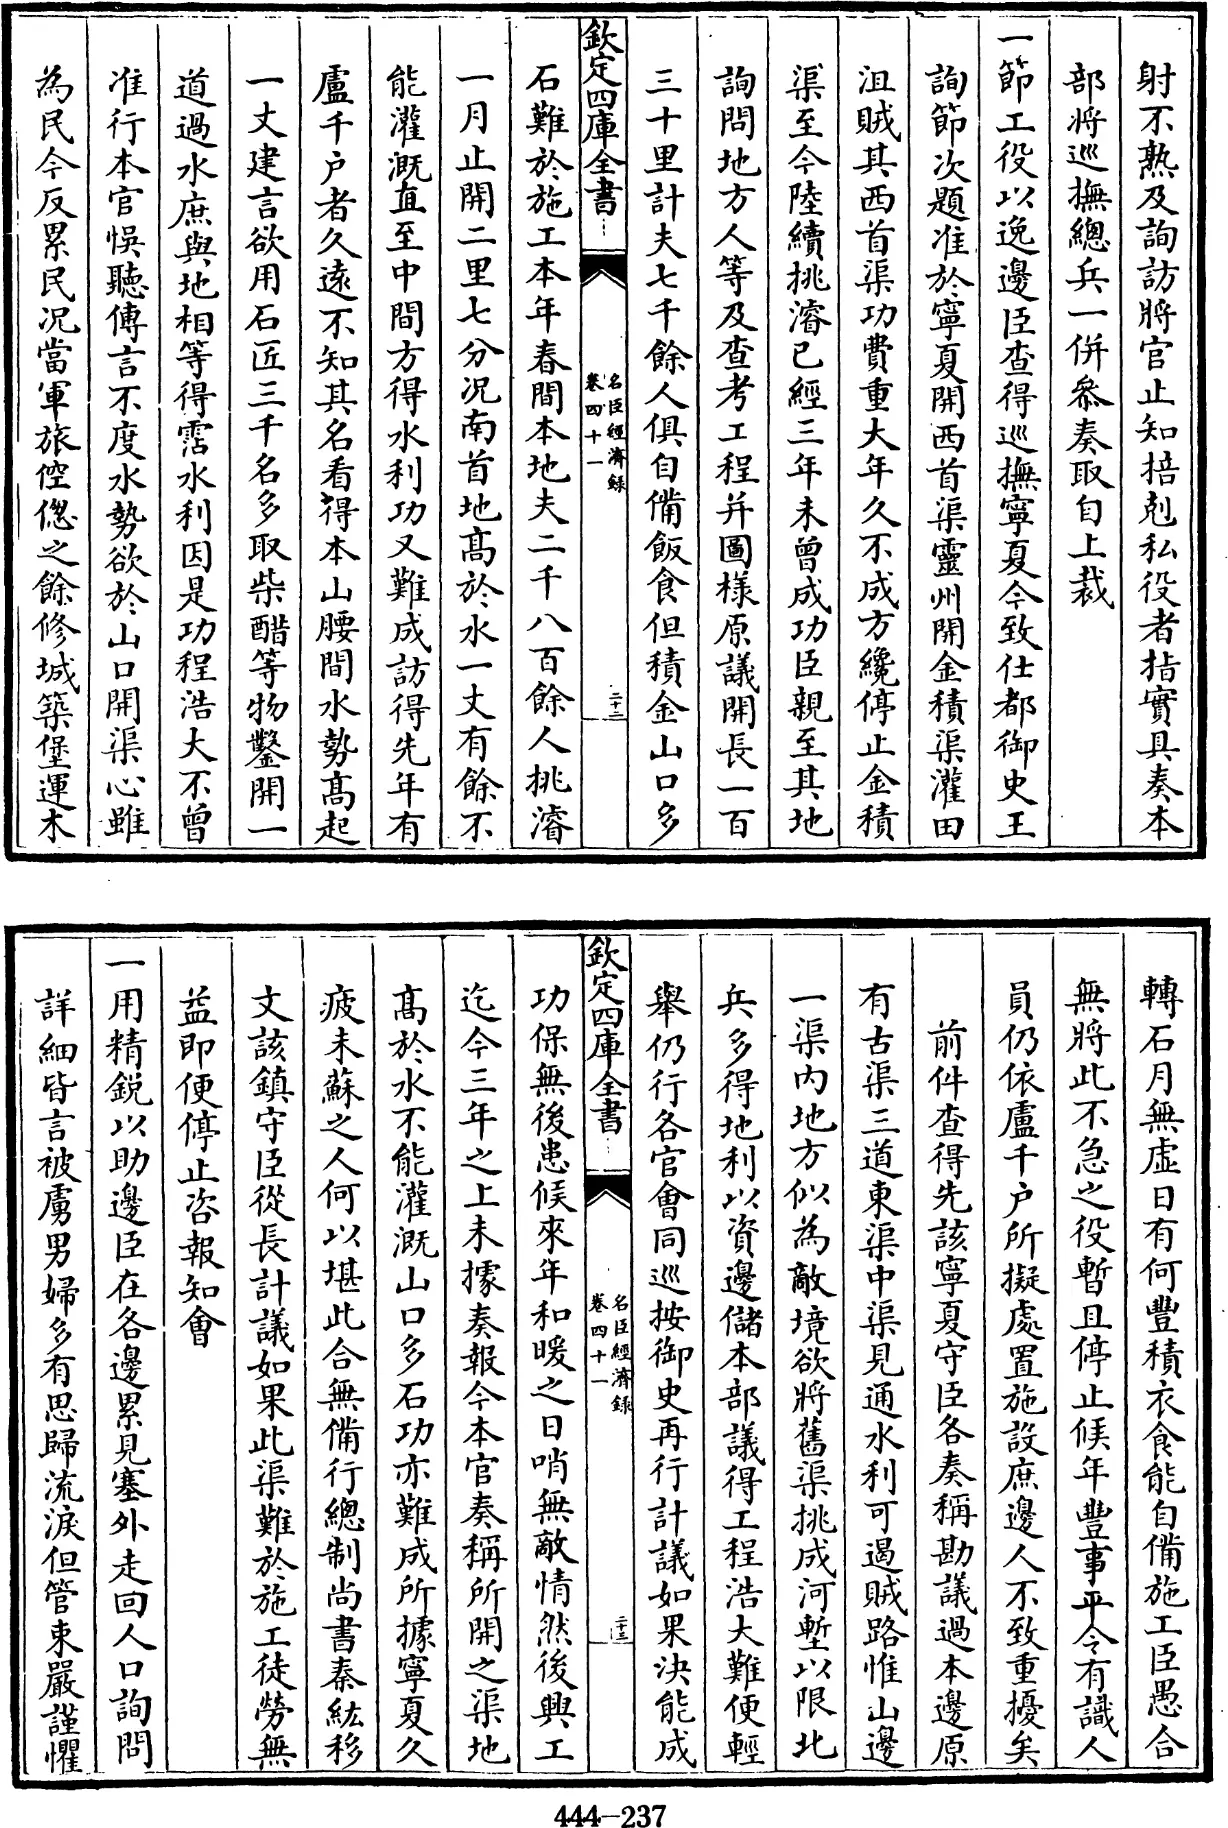 射不熟及詢訪將官止知掊剋私役者指實具奏本
部將巡撫總兵一併叅奏取自上裁
一節工役以逸邊臣查得巡撫寧夏今致仕都御史王
詢節次題准於寧夏開西首渠靈州開金積渠灌田
沮賊其西首渠功費重大年久不成方纔停止金積
渠至今陸續挑濬已經三年未曾成功臣親至其地
詢問地方人等及查考工程并圖樣原議開長一百
三十里計夫七千餘人俱自備飯食但積金山口多
欽定四庫全書
名臣經濟録
卷四十一
二十二
石難於施工本年春間本地夫二千八百餘人挑濬
一月止開二里七分况南首地髙於水一丈有餘不
能灌溉直至中間方得水利功又難成訪得先年有
盧千户者久逺不知其名看得本山腰間水勢髙起
一丈建言欲用石匠三千名多取柴醋等物鑿開一
道過水庶與地相等得霑水利因是功程浩大不曾
准行本官悞聽傳言不度水勢欲於山口開渠心雖
為民今反累民况當軍旅倥傯之餘修城築堡運木
轉石月無虚日有何豐積衣食能自備施工臣愚合
無將此不急之役暫且停止候年豐事平令有識人
員仍依盧千户所擬處置施設庶邊人不致重擾矣
前件查得先該寧夏守臣各奏稱勘議過本邊原
有古渠三道東渠中渠見通水利可遏賊路惟山邊
一渠内地方似為敵境欲將舊渠挑成河塹以限北
兵多得地利以資邊儲本部議得工程浩大難便輕
舉仍行各官會同巡按御史再行計議如果決能成
欽定四庫全書
名臣經濟録
卷四十一
二十三
功保無後患候來年和暖之日哨無敵情然後興工
迄今三年之上未據奏報今本官奏稱所開之渠地
髙於水不能灌溉山口多石功亦難成所據寧夏久
疲未蘇之人何以堪此合無備行總制尚書秦紘移
文該鎮守臣從長計議如果此渠難於施工徒勞無
益即便停止咨報知會
一用精鋭以助邊臣在各邊累見塞外走回人口詢問
詳細皆言被虜男婦多有思歸流淚但管束嚴謹懼
444-237